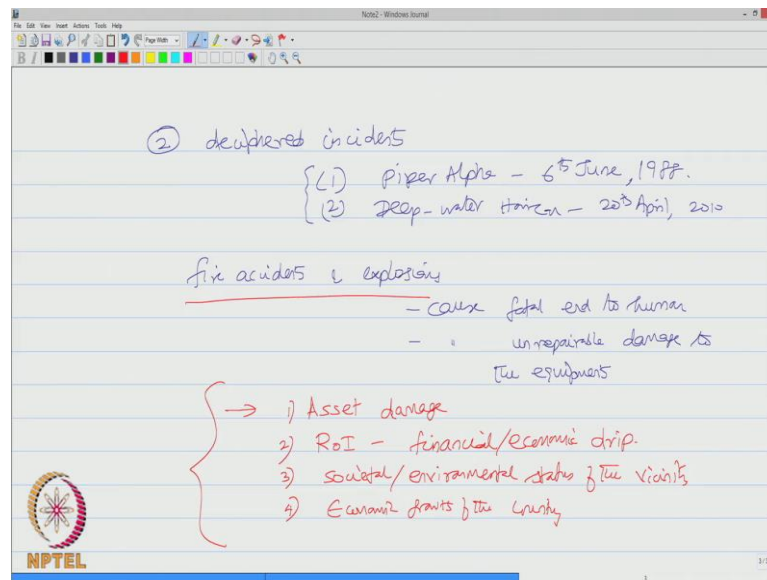 Note2 - Windows Journal
File Edit View Insert Actions Tools Help
Page Width
② deciphered incidents
(1) Piper Alpha - 6th June, 1988.
(2) Deep-water Horizon - 20th April, 2010
fire accidents & explosions
- cause fatal end to human
- " unrepairable damage to
the equipment
→ 1) Asset damage
2) RoI - financial/economic drip.
3) societal/environmental status of the vicinity
4) Economic growth of the country
NPTEL